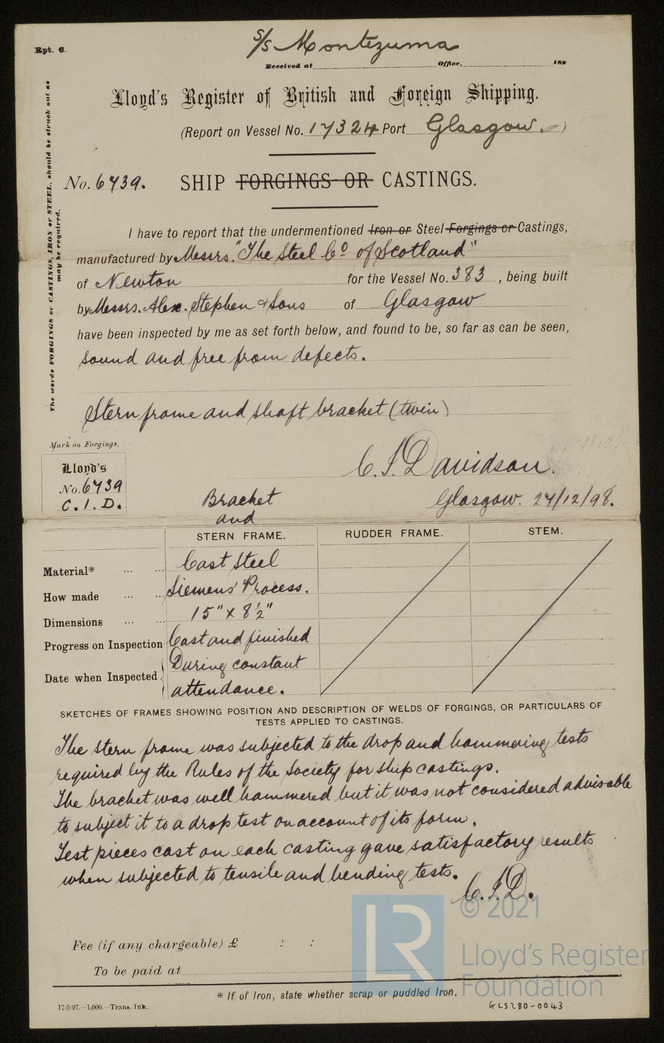 Rpt. 6.
S/S Montezuma
Received at Office, 189
Lloyd's Register of British and Foreign Shipping.
(Report on Vessel No. 17324 Port Glasgow.)
No. 6739. SHIP FORGINGS OR CASTINGS.
The words FORGINGS or CASTINGS, IRON or STEEL, should be struck out as
may be required.
I have to report that the undermentioned Iron or Steel Forgings or Castings,
manufactured by Messrs. "The Steel Co. of Scotland"
of Newton for the Vessel No. 383, being built
by Messrs. Alex. Stephen & Sons of Glasgow
have been inspected by me as set forth below, and found to be, so far as can be seen,
sound and free from defects.
Stern frame and shaft bracket (twin)
Mark on Forgings.
Lloyd's
No. 6739
C. I. D.
C. I. Davidson.
Glasgow. 24/12/98.
Bracket
and
STERN FRAME. RUDDER FRAME. STEM.
Material* ... ... Cast Steel
How made ... ... Siemens' Process.
Dimensions ... ... 15" x 8½"
Progress on Inspection Cast and finished
Date when Inspected During constant
attendance.
SKETCHES OF FRAMES SHOWING POSITION AND DESCRIPTION OF WELDS OF FORGINGS, OR PARTICULARS OF
TESTS APPLIED TO CASTINGS.
The stern frame was subjected to the drop and hammering tests
required by the Rules of the Society for ship castings.
The bracket was well hammered but it was not considered advisable
to subject it to a drop test on account of its form.
Test pieces cast on each casting gave satisfactory results
when subjected to tensile and bending tests.
C. I. D.
Fee (if any chargeable) £ : :
To be paid at
* If of Iron, state whether scrap or puddled Iron.
17/5/97.—1,000.—Trans. Ink.
GLS280-0043
LR
© 2021
Lloyd's Register
Foundation